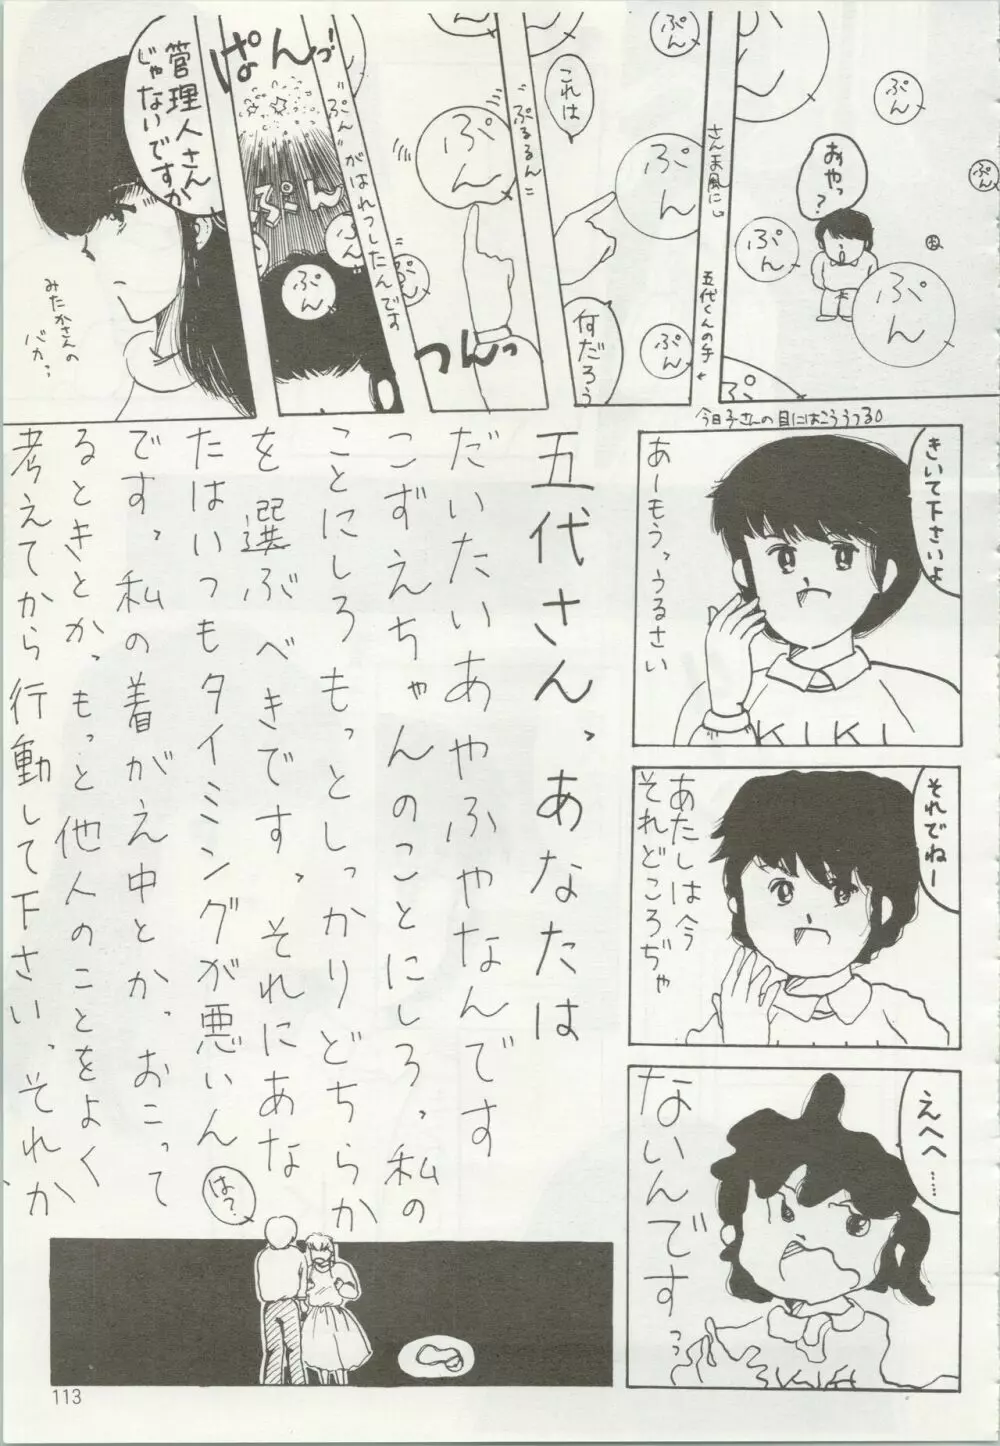 ぷん
ぷん
ぷん
おやっ?
ぷん
ぷん
ぷん
さんま風に
五代くんの手
ぷん
ぷん
これは
何だろう
"ぷるるん"
ぷん
つんっ
ぷん
"ぷん"がはれつしたんです
ぱんっ!
ぷん
ぷん
ぷん
管理人さん
じゃないですか
みたかさんの
バカっ
今日子さんの目にはこううつる。
きいて下さいよ
あーもうっうるさい
KIKI
それでねー
あたしは今
それどころぢゃ
えへへ……
ないんですっ
五代さん、あなたは
だいたいあやふやなんです
こずえちゃんのことにしろ、私の
ことにしろもっとしっかりどちらか
を選ぶべきです。それにあな
たはいつもタイミングが悪いん
です。私の着がえ中とか、おこって
るときとか、もっと他人のことをよく
考えてから行動して下さい、それか
は?
113